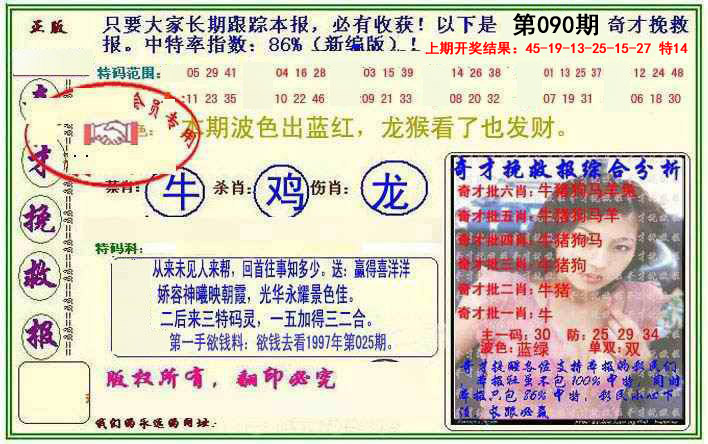 正版
只要大家长期跟踪本报，必有收获！以下是 第090期 奇才挽救
报。中特率指数：86%（新编版）！
上期开奖结果：45-19-13-25-15-27 特14
特码范围：
05 29 41 04 16 28 03 15 39 14 26 38 01 13 25 37 12 24 48
11 23 35 10 22 46 09 21 33 08 20 32 07 19 31 06 18 30
会员专用
本期波色出蓝红，龙猴看了也发财。
才
挽
救
报
禁肖：牛 杀肖：鸡 伤肖：龙
特码科：
从来未见人来帮，回首往事知多少。送：赢得喜洋洋
娇容神曦映朝霞，光华永耀景色佳。
二后来三特码灵，一五加得三二合。
第一手欲钱料：欲钱去看1997年第025期。
版权所有，翻印必究
我们的永远的网址：
奇才挽救报综合分析
奇才批六肖：牛猪狗马羊
奇才批五肖：牛猪狗马羊
奇才批四肖：牛猪狗马
奇才批三肖：牛猪狗
奇才批二肖：牛猪
奇才批一肖：牛
主一码：30 防：25 29 34
波色：蓝绿 单双：双
奇才挽救各位支持本报的彩民们
本报虽不包100%中特，但
本报只包86%中特，彩民小心下
注，长跟必赢